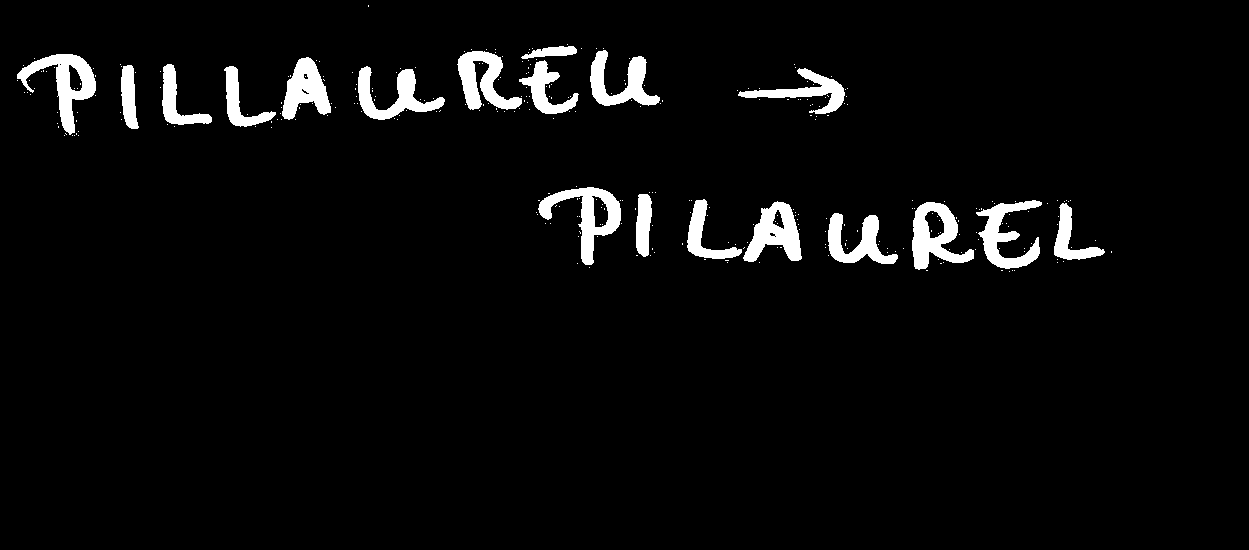 PILLAUREU →
PILAUREL